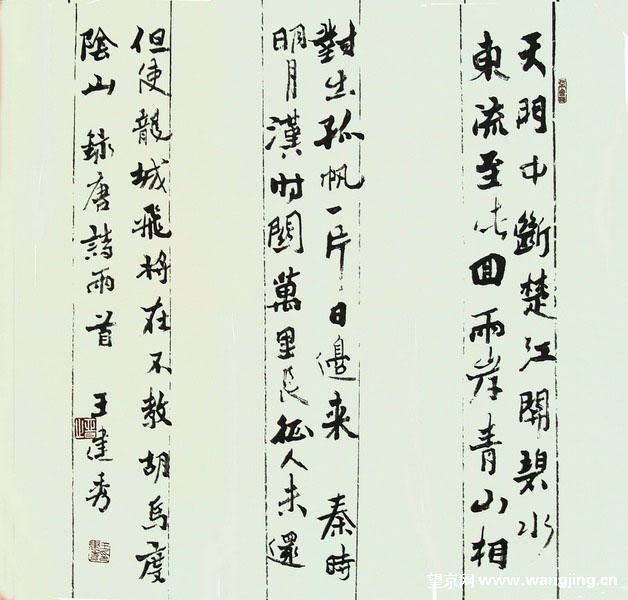 天門中斷楚江開碧水
東流至此回兩岸青山相
對出孤帆一片日邊来 秦時
明月漢时關萬里長征人未還
但使龍城飛將在不教胡馬度
陰山 錄唐詩兩首 王建秀
望京网 www.wangjing.cn